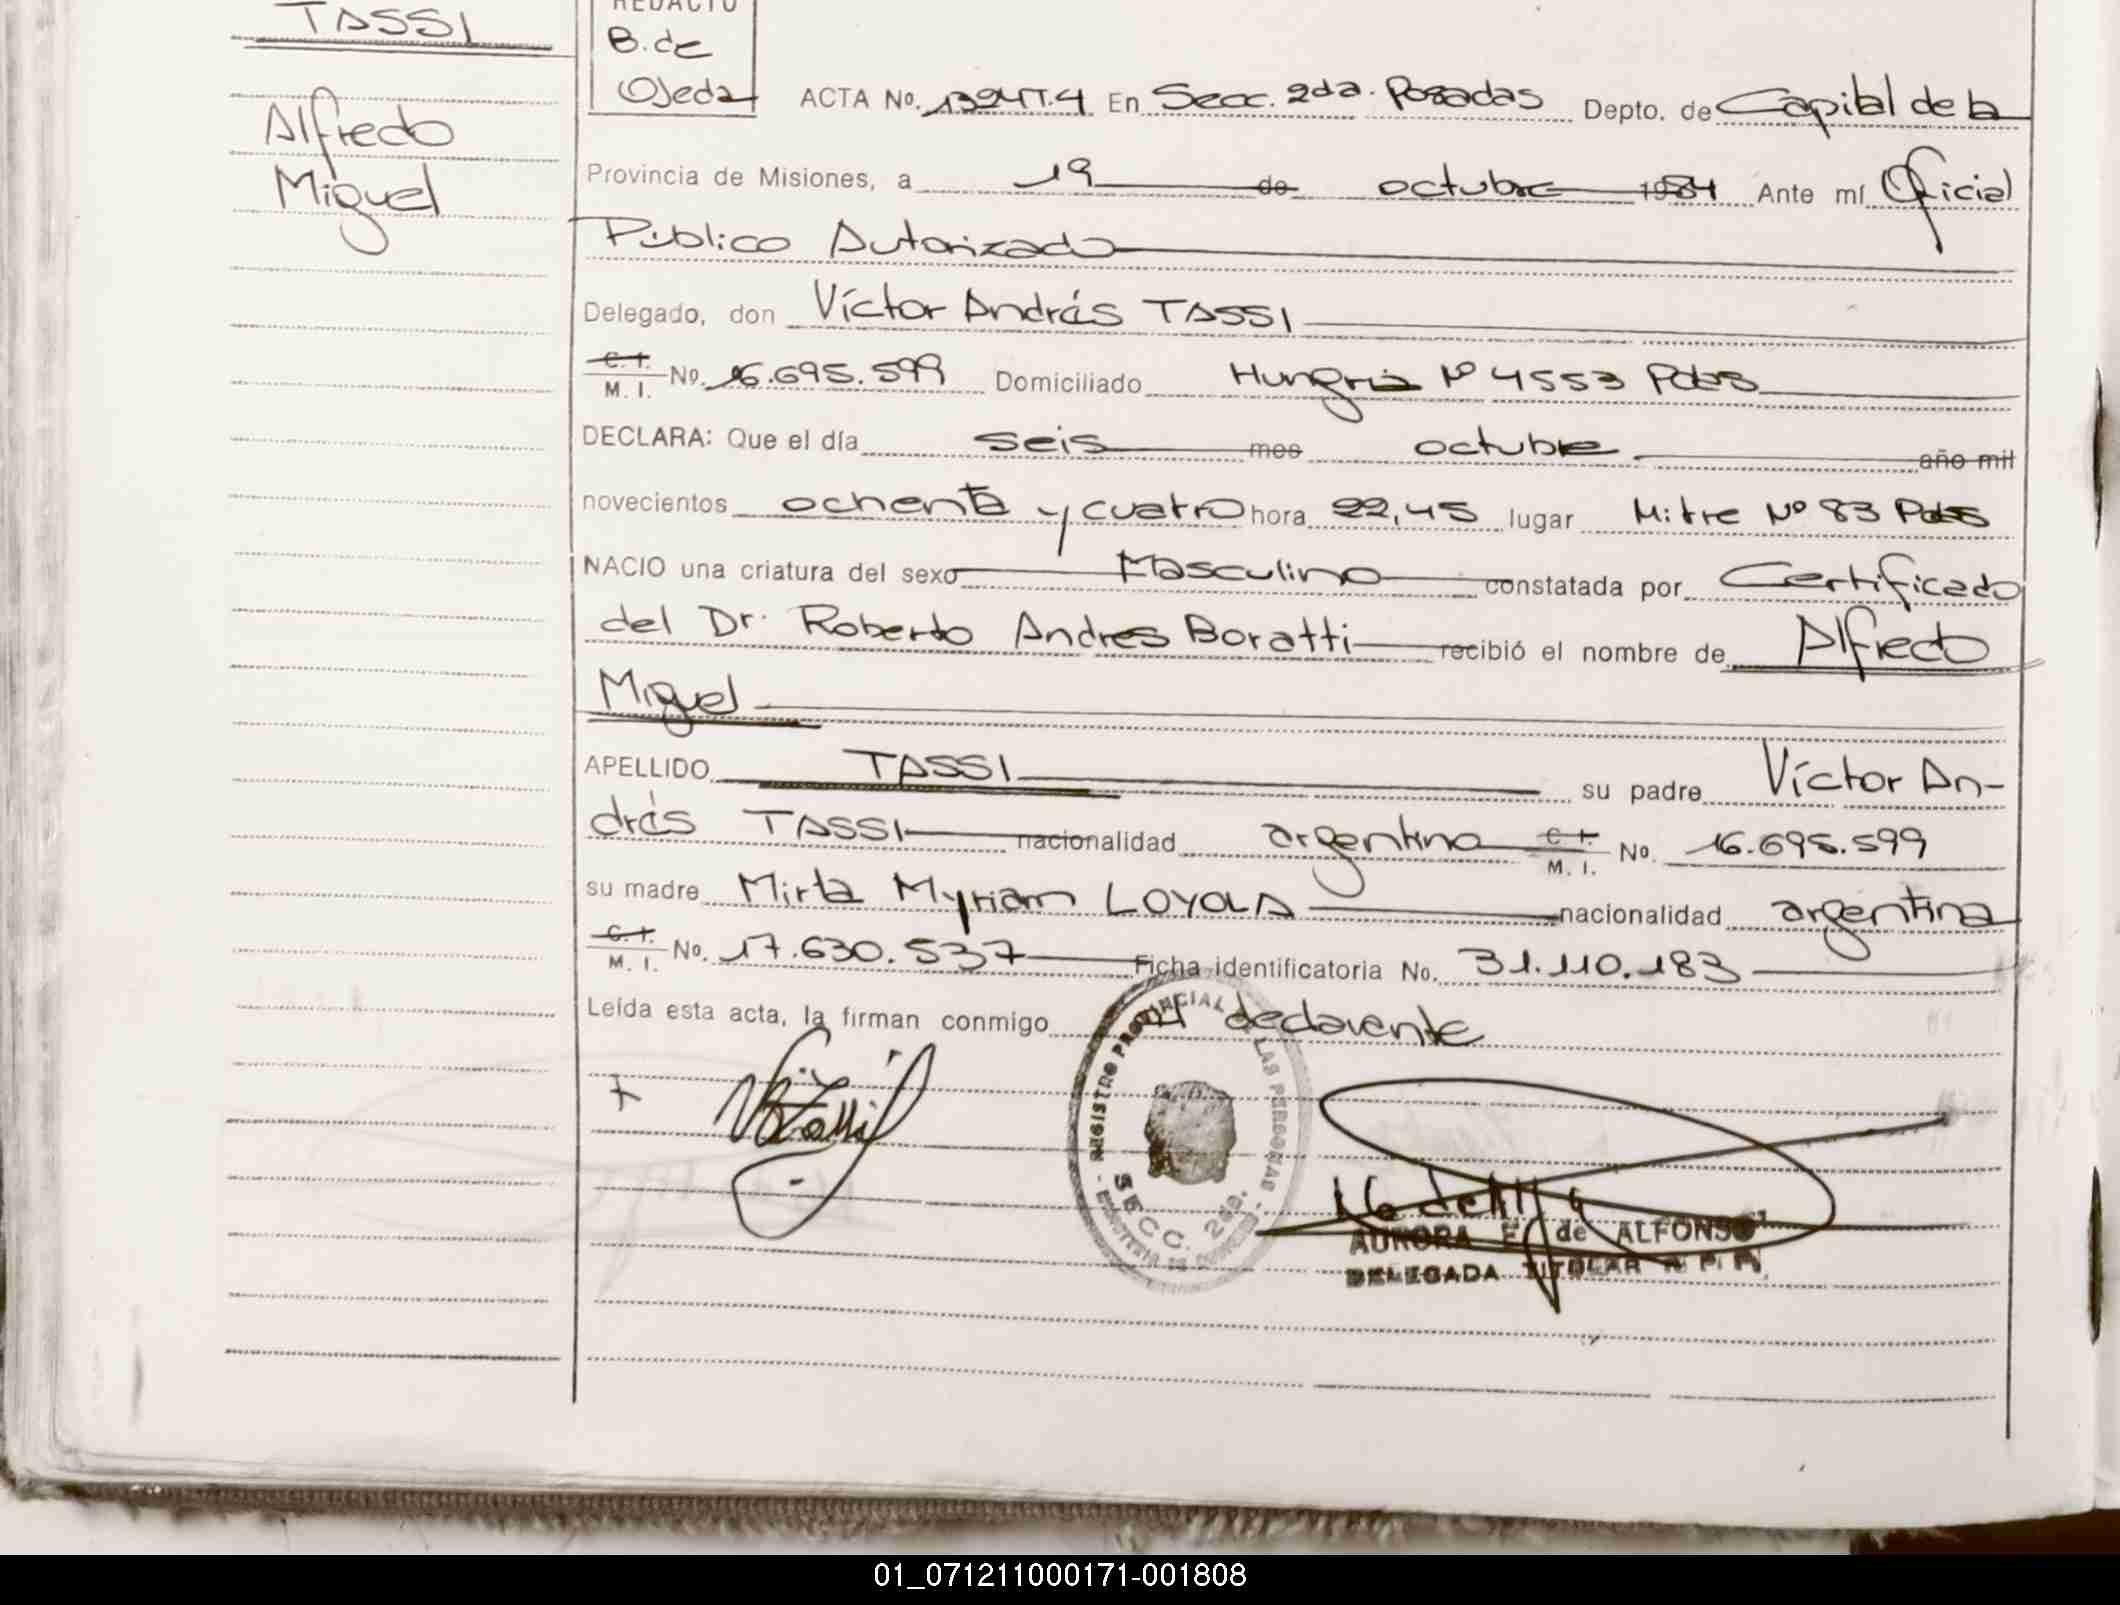 TASSI
Alfredo
Miguel
REDACTO
B. de
Ojeda
ACTA No. 1394T.4 En Secc. 2da. Posadas Depto. de Capital de la
Provincia de Misiones, a 19 de octubre 1984 Ante mí Oficial
Público Autorizado
Delegado, don Víctor Andrés TASSI
C. I. / M. I. No. 16.695.599 Domiciliado Hungria Nº 4553 Pdas
DECLARA: Que el día seis mes octubre año mil
novecientos ochenta y cuatro hora 22,45 lugar Mitre Nº 83 Pdas
NACIO una criatura del sexo Masculino constatada por Certificado
del Dr. Roberto Andres Boratti recibió el nombre de Alfredo
Miguel
APELLIDO TASSI su padre Víctor An-
drés TASSI nacionalidad argentina C. I. / M. I. No. 16.695.599
su madre Mirta Myriam LOYOLA nacionalidad argentina
C. I. / M. I. No. 17.630.537 Ficha identificatoria No. 31.110.183
Leída esta acta, la firman conmigo el declarente
REGISTRO PROVINCIAL DE LAS PERSONAS
SECC. 2da.
AURORA E. de ALFONSO
DELEGADA TITULAR R. P. P.
01_071211000171-001808